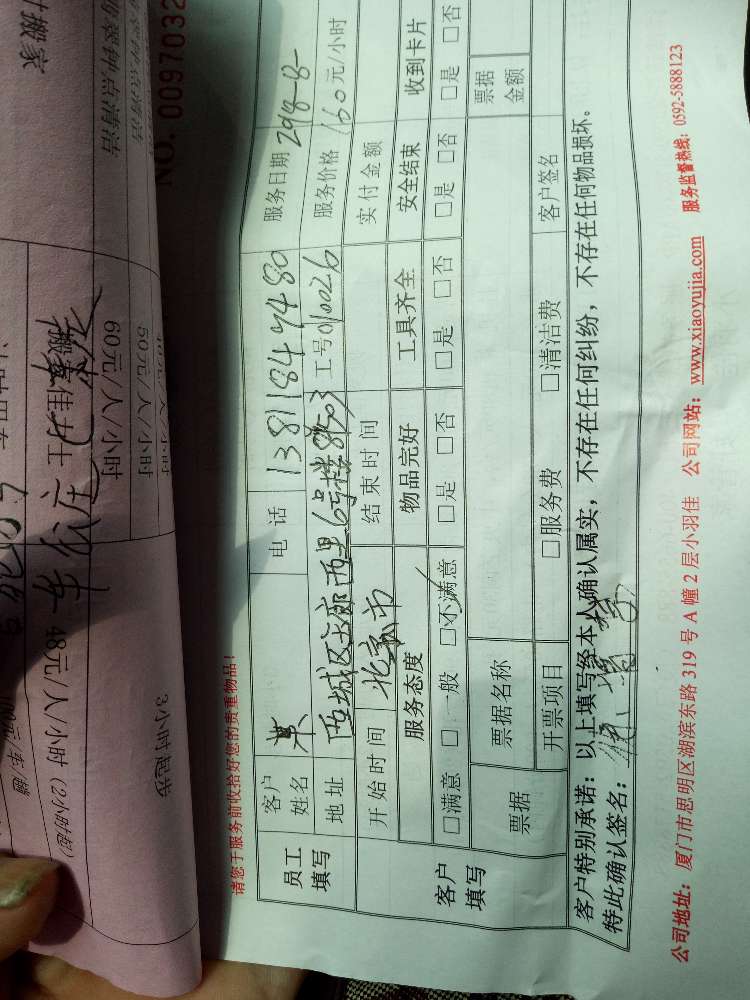 搬家
NO. 0097032
50元/人/小时
60元/人/小时
48元/人/小时（2小时起）
3小时起步
请您于服务前收拾好您的贵重物品！
员工填写
客户姓名
电话 13811847480
服务日期 298-8-
地址 西城区 西里6号楼
工号 010026
服务价格 160元/小时
开始时间 北京市
结束时间
实付金额
客户填写
服务态度 物品完好 工具齐全 安全结束 收到卡片
□满意 □一般 □不满意 □是 □否 □是 □否 □是 □否 □是 □否
票据 票据名称 票据金额
开票项目 □服务费 □清洁费 客户签名
客户特别承诺：以上填写经本人确认属实，不存在任何纠纷，不存在任何物品损坏。
特此确认签名：
公司地址：厦门市思明区湖滨东路319号A幢2层小羽佳 公司网站：www.xiaoyujia.com 服务监督热线：0592-5888123